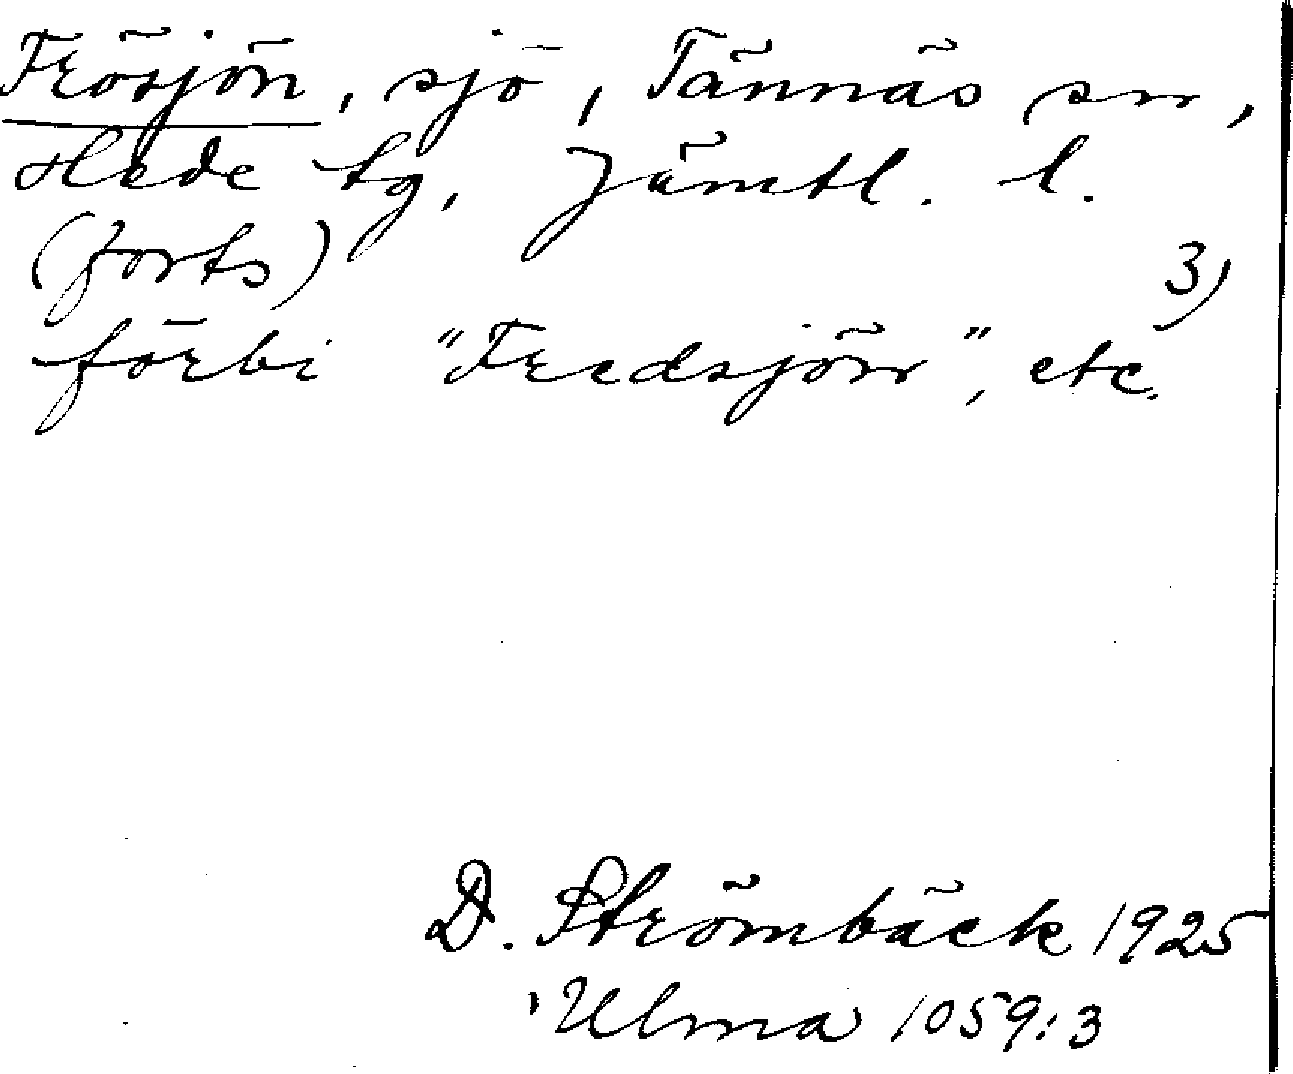 Frösjön, sjö, Tännäs sn,
Hede tg, Jämtl. l.
(forts) 3)
förbi "Fredsjön", etc.
D. Strömbäck 1925
Ulma 1059:3